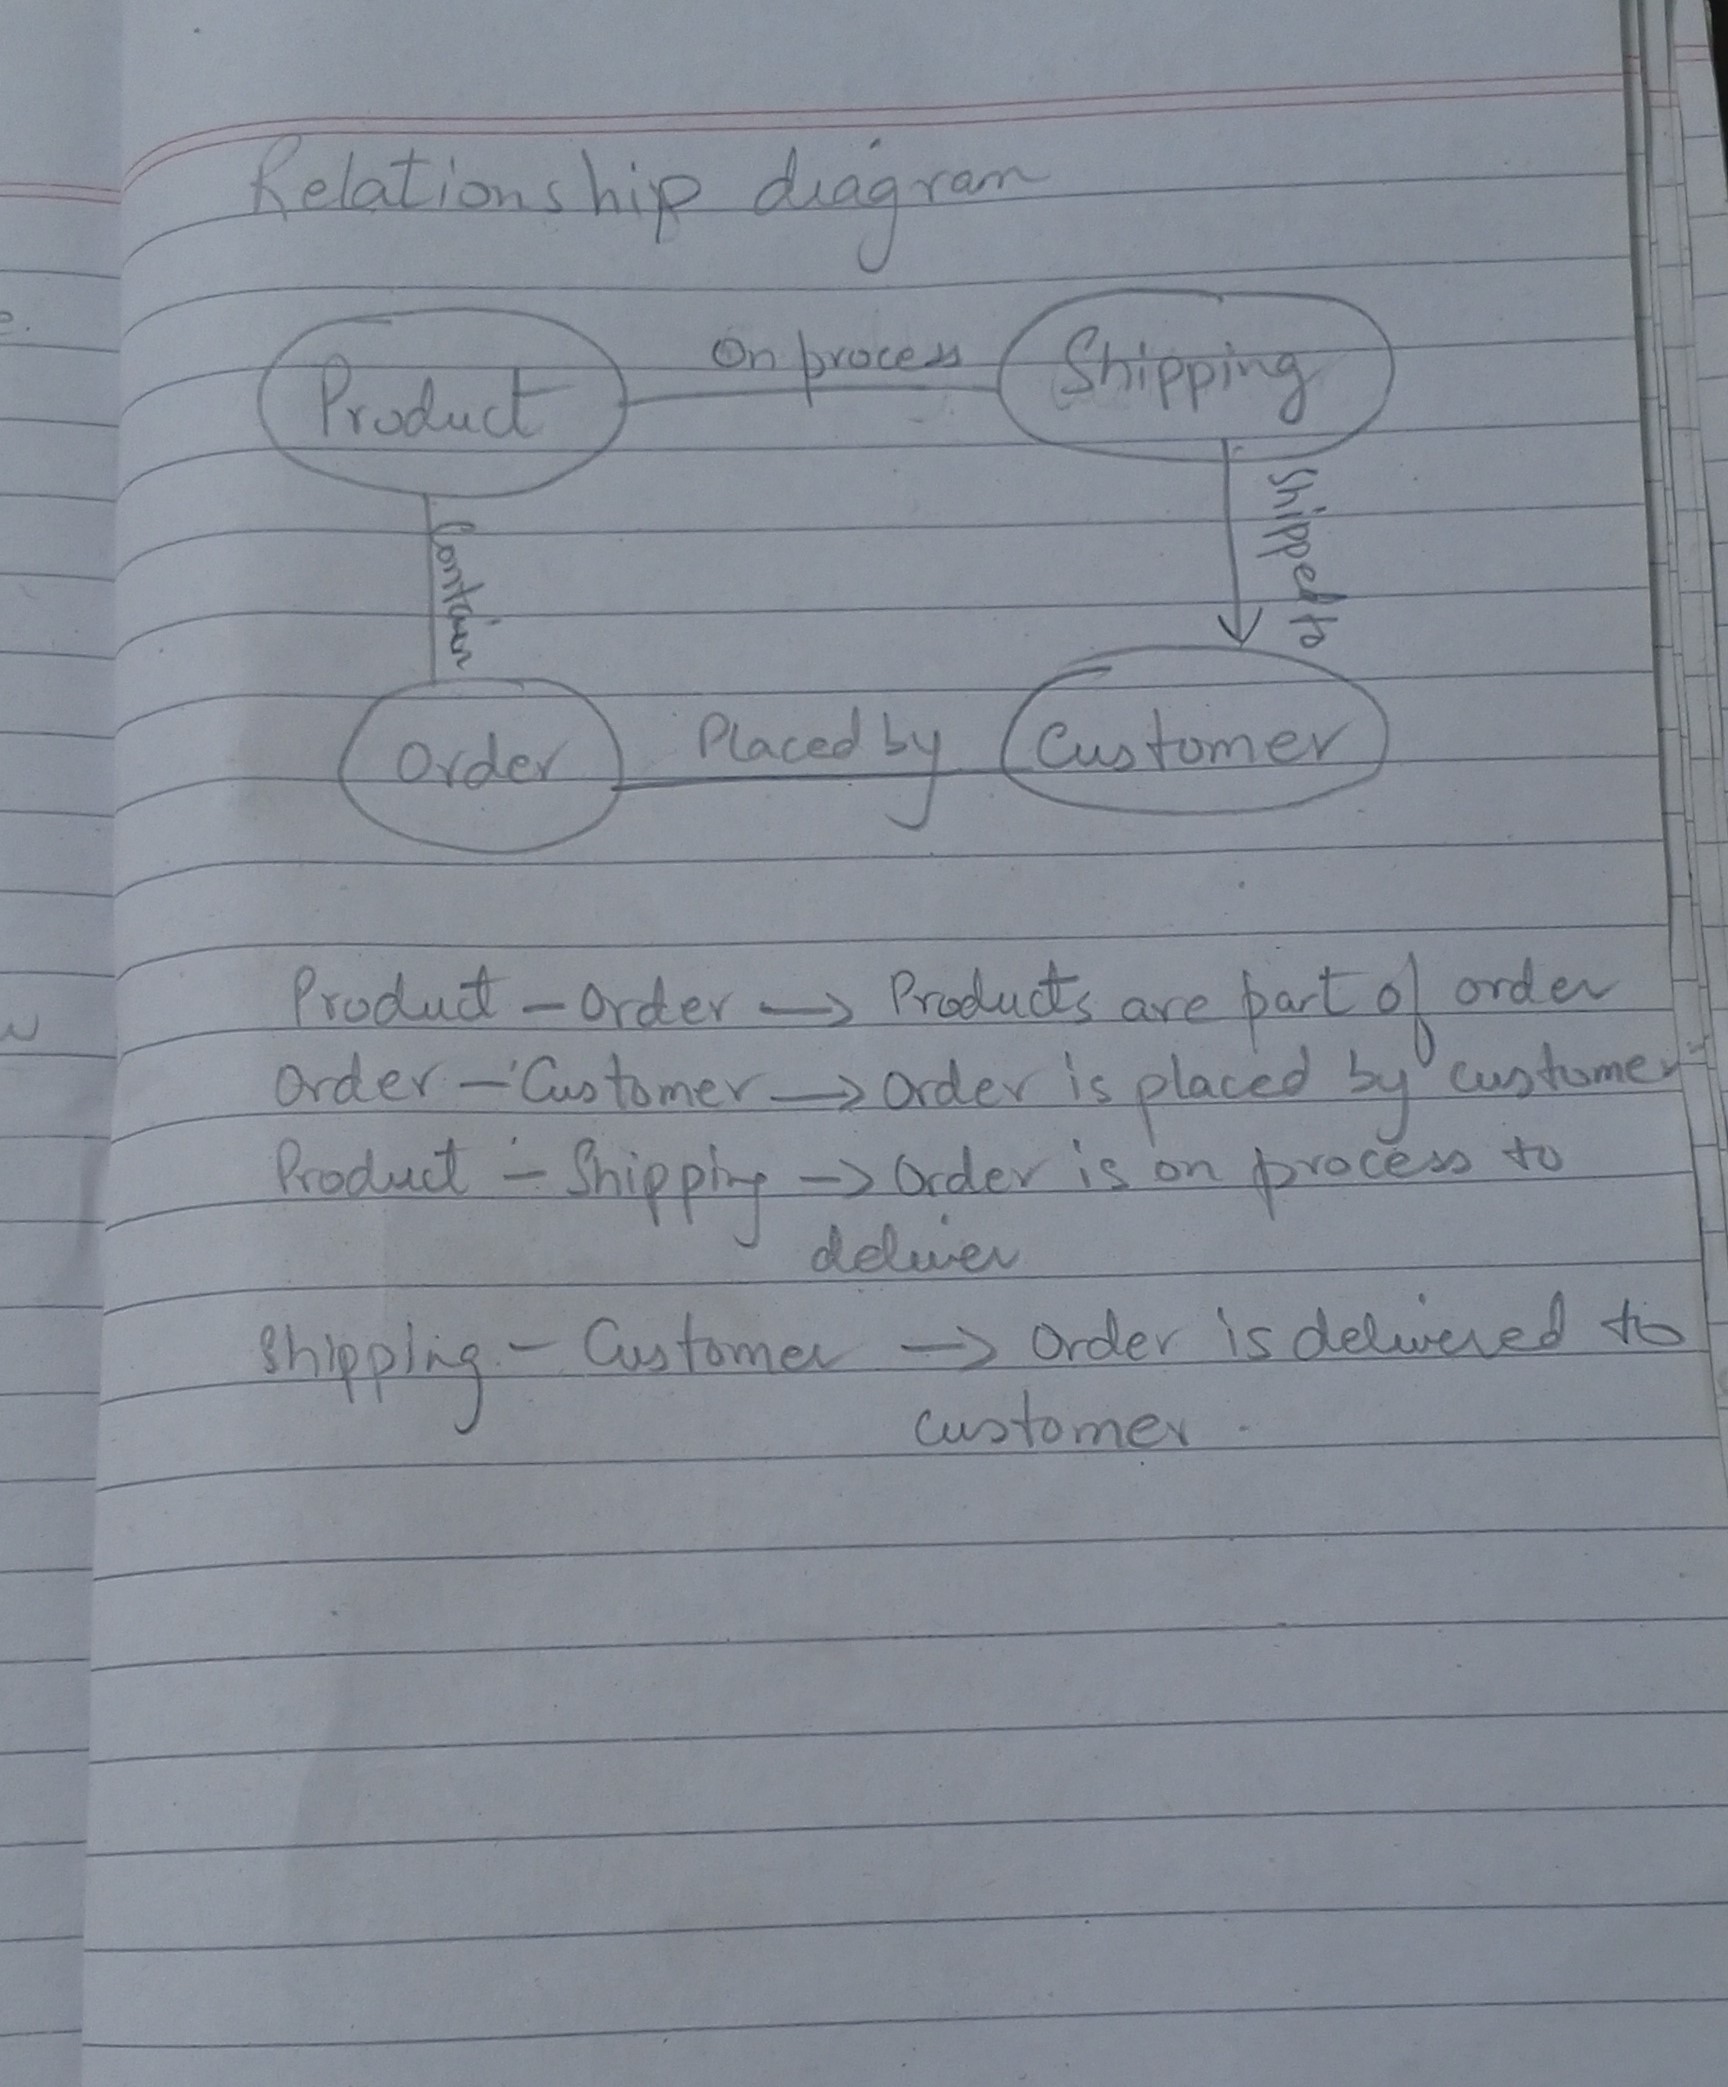 Relationship diagram
Product
On process
Shipping
Contain
Shipped to
Order
Placed by
Customer
Product - Order → Products are part of order
Order - Customer → Order is placed by customer
Product - Shipping → Order is on process to
deliver
Shipping - Customer → Order is delivered to
customer.